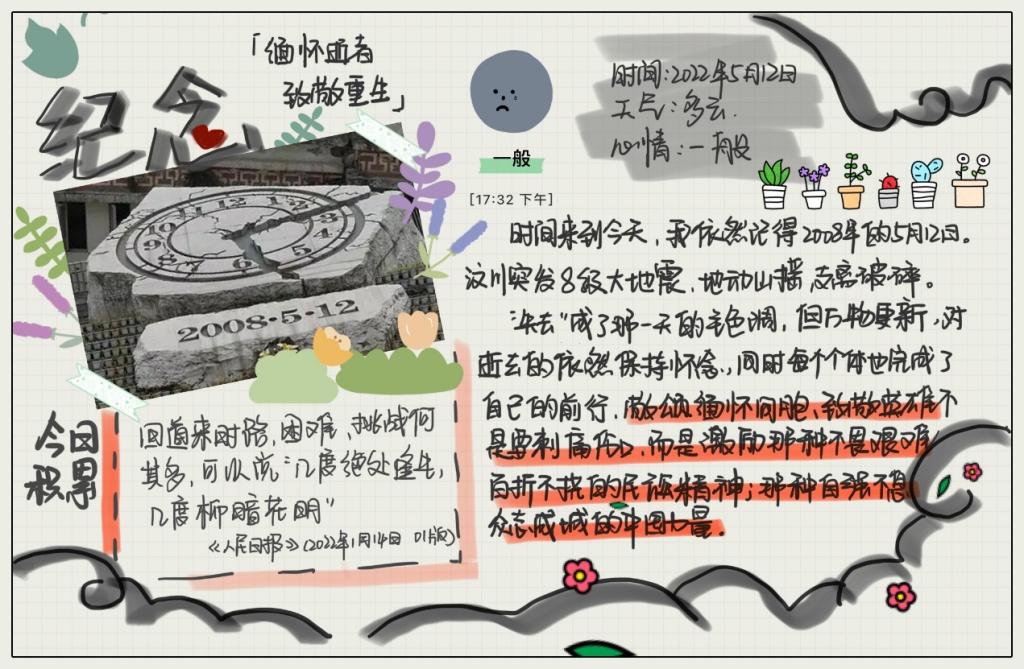 纪念
「缅怀逝者
致敬重生」
一般
[17:32 下午]
时间:2022年5月12日
天气:多云
心情:一般
12 1 2 3 4 5 6 7 8 9 10 11
2008·5·12
时间来到今天,我依然记得2008年的5月12日。
汶川突发8级大地震,地动山摇,支离破碎。
“失去”成了那一天的主色调,但万物更新,对
逝去的依然保持怀念,同时每个个体也完成了
自己的前行,歌颂缅怀同胞,致敬英雄不
是要刺痛伤口,而是激励那种不畏艰难
百折不挠的民族精神;那种自强不息
众志成城的中国力量。
今日
积累
回首来时路,困难、挑战何
其多,可以说“几度绝处逢生,
几度柳暗花明”
《人民日报》(2022年1月14日 01版)